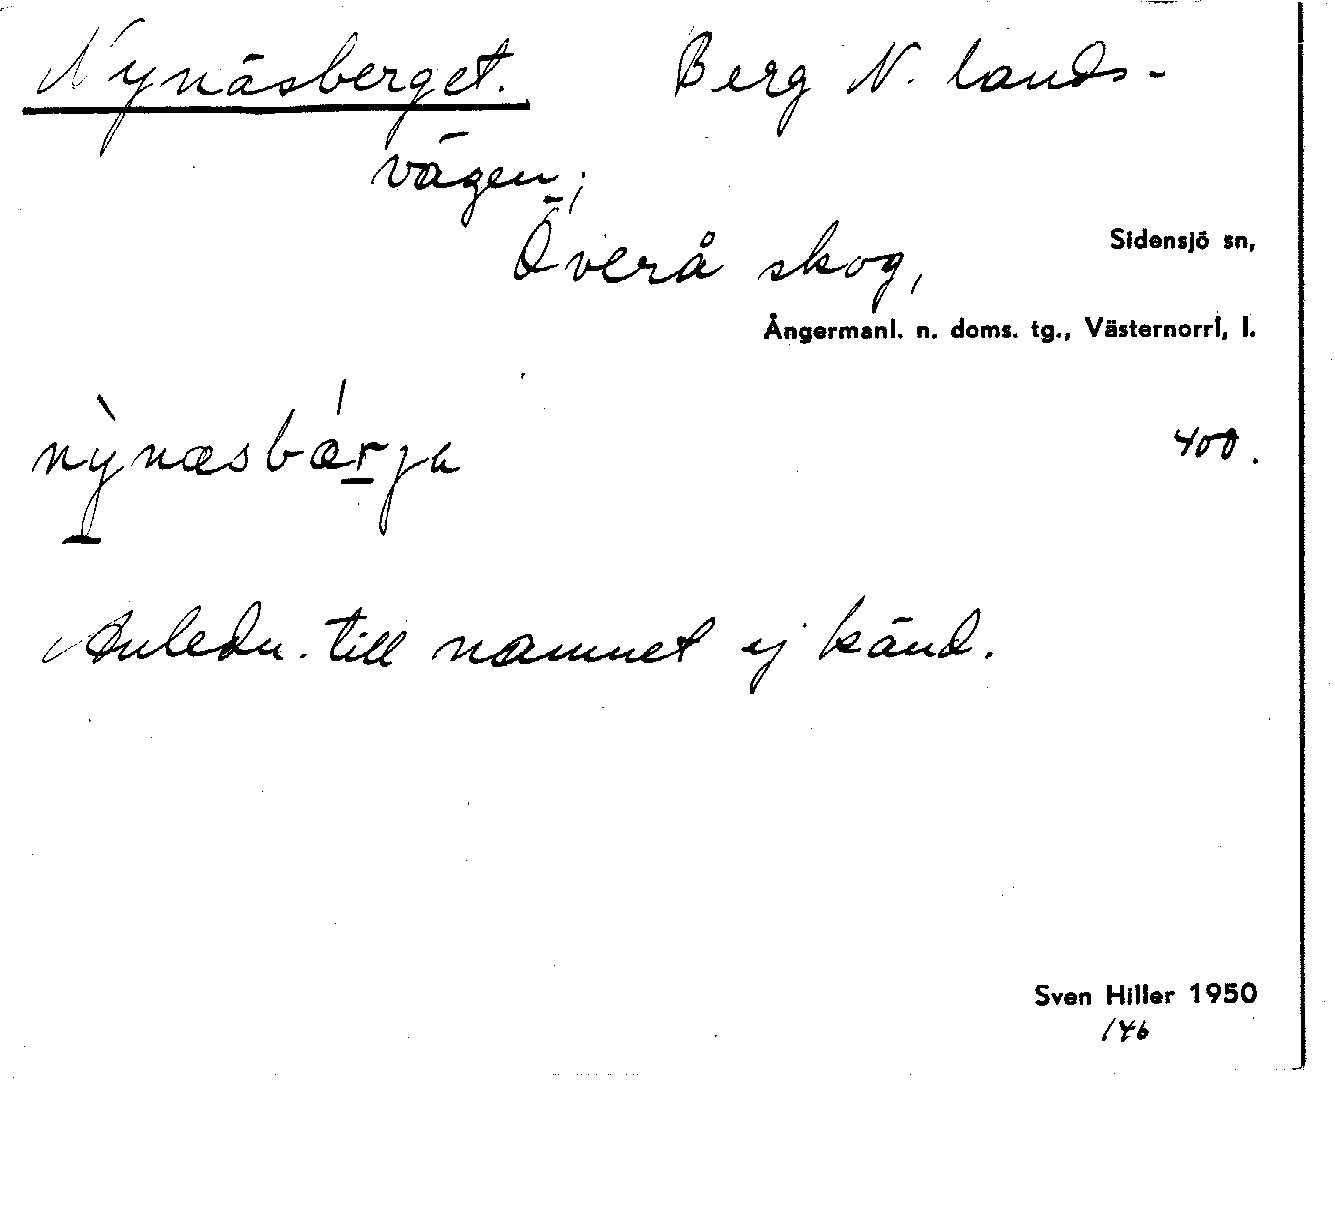 Nynäsberget. Berg N. lands-
vägen;
Överå skog,
Sidensjö sn,
Ångermanl. n. doms. tg., Västernorrl, l.
nỳnæsbá̱rja
400.
Anledn. till namnet ej känd.
Sven Hiller 1950
146